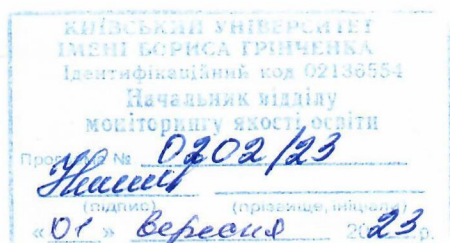 КИЇВСЬКИЙ УНІВЕРСИТЕТ
ІМЕНІ БОРИСА ГРІНЧЕНКА
Ідентифікаційний код 02136554
Начальник відділу
моніторингу якості освіти
Програма № 0202/23
(підпис) (прізвище, ініціали)
«01» вересня 2023 р.